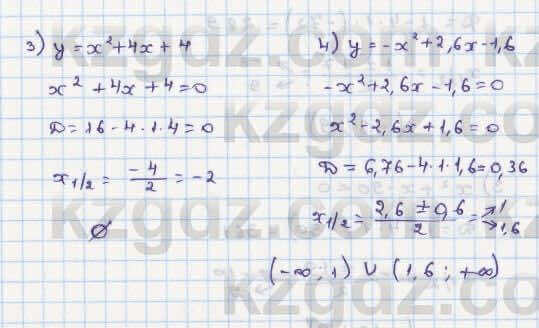 3) y = x² + 4x + 4
x² + 4x + 4 = 0
D = 16 - 4 · 1 · 4 = 0
x 1/2 = -4/2 = -2
∅
4) y = -x² + 2,6x - 1,6
-x² + 2,6x - 1,6 = 0
x² - 2,6x + 1,6 = 0
D = 6,76 - 4 · 1 · 1,6 = 0,36
x 1/2 = 2,6 ± 0,6 / 2 = → 1 → 1,6
(-∞ ; 1) ∪ (1,6 ; +∞)
kzgdz.com